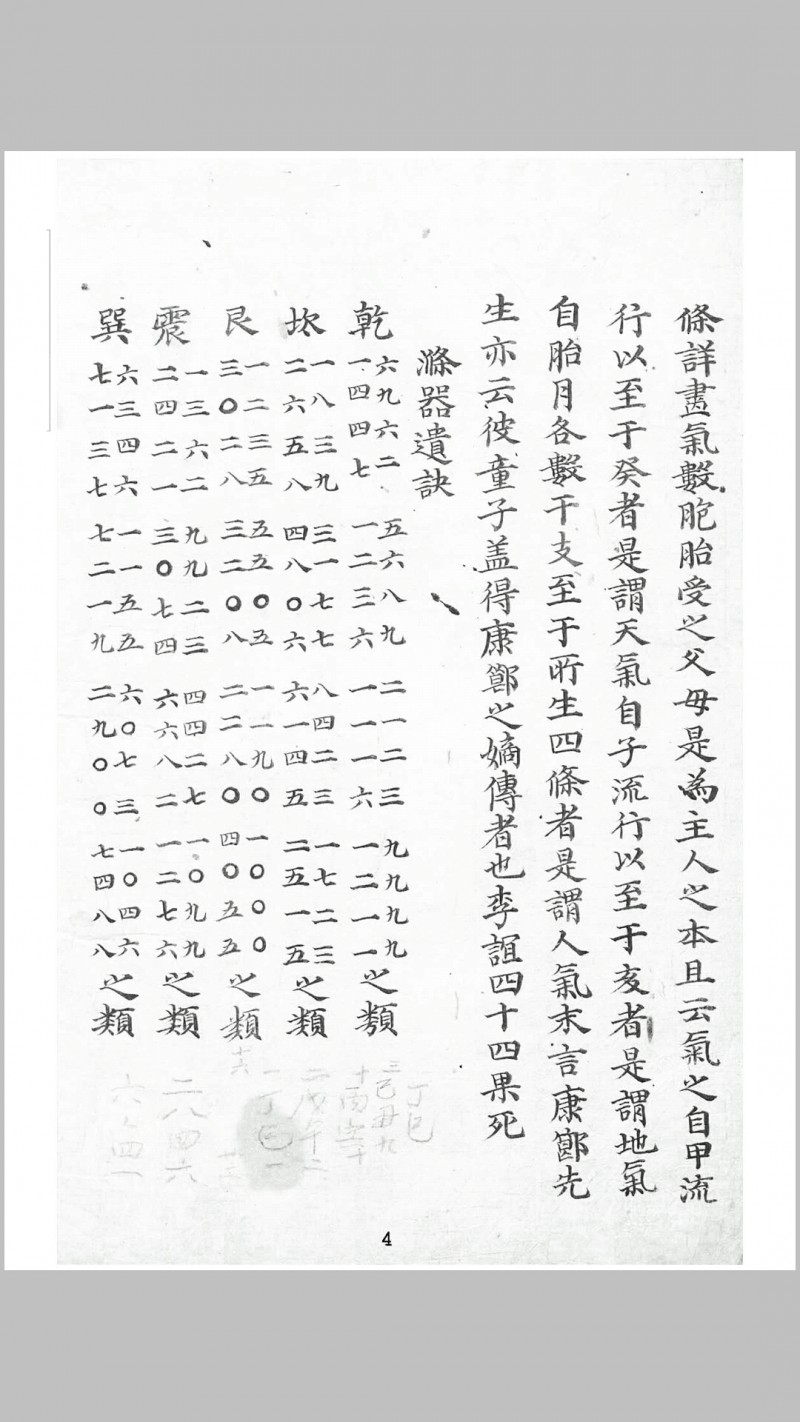 條詳畫氣數胞胎受之父母是為主人之本且云氣之自甲流
行以至于癸者是謂天氣自子流行以至于亥者是謂地氣
自胎月各數干支至于所生四條者是謂人氣末言康節先
生亦云彼童子盖得康節之嫡傳者也李誼四十四果死
滌器遺訣
乾
六九六二 五六八九 二一二三 九九九九
一四四七 一二三六 一一一六 一二一一
之類
坎
一八三九 三一七七 八四二三 一七二三
二六五八 四八〇六 六一四五 二五一五
之類
艮
一二三五 五五〇五 一一九〇 一〇〇〇
三〇二八 三二〇八 二二八〇 四〇五五
之類
震
一三六二 九九二三 四四二七 一〇九九
二四二一 三〇七四 六六八二 一二七六
之類
巽
六三四六 一一五五 六〇七三 一〇四六
七一三七 七二一九 二九〇〇 七四八八
之類
丁巳
三己丑九
二戊午二
一丁巳一
二八四六
4